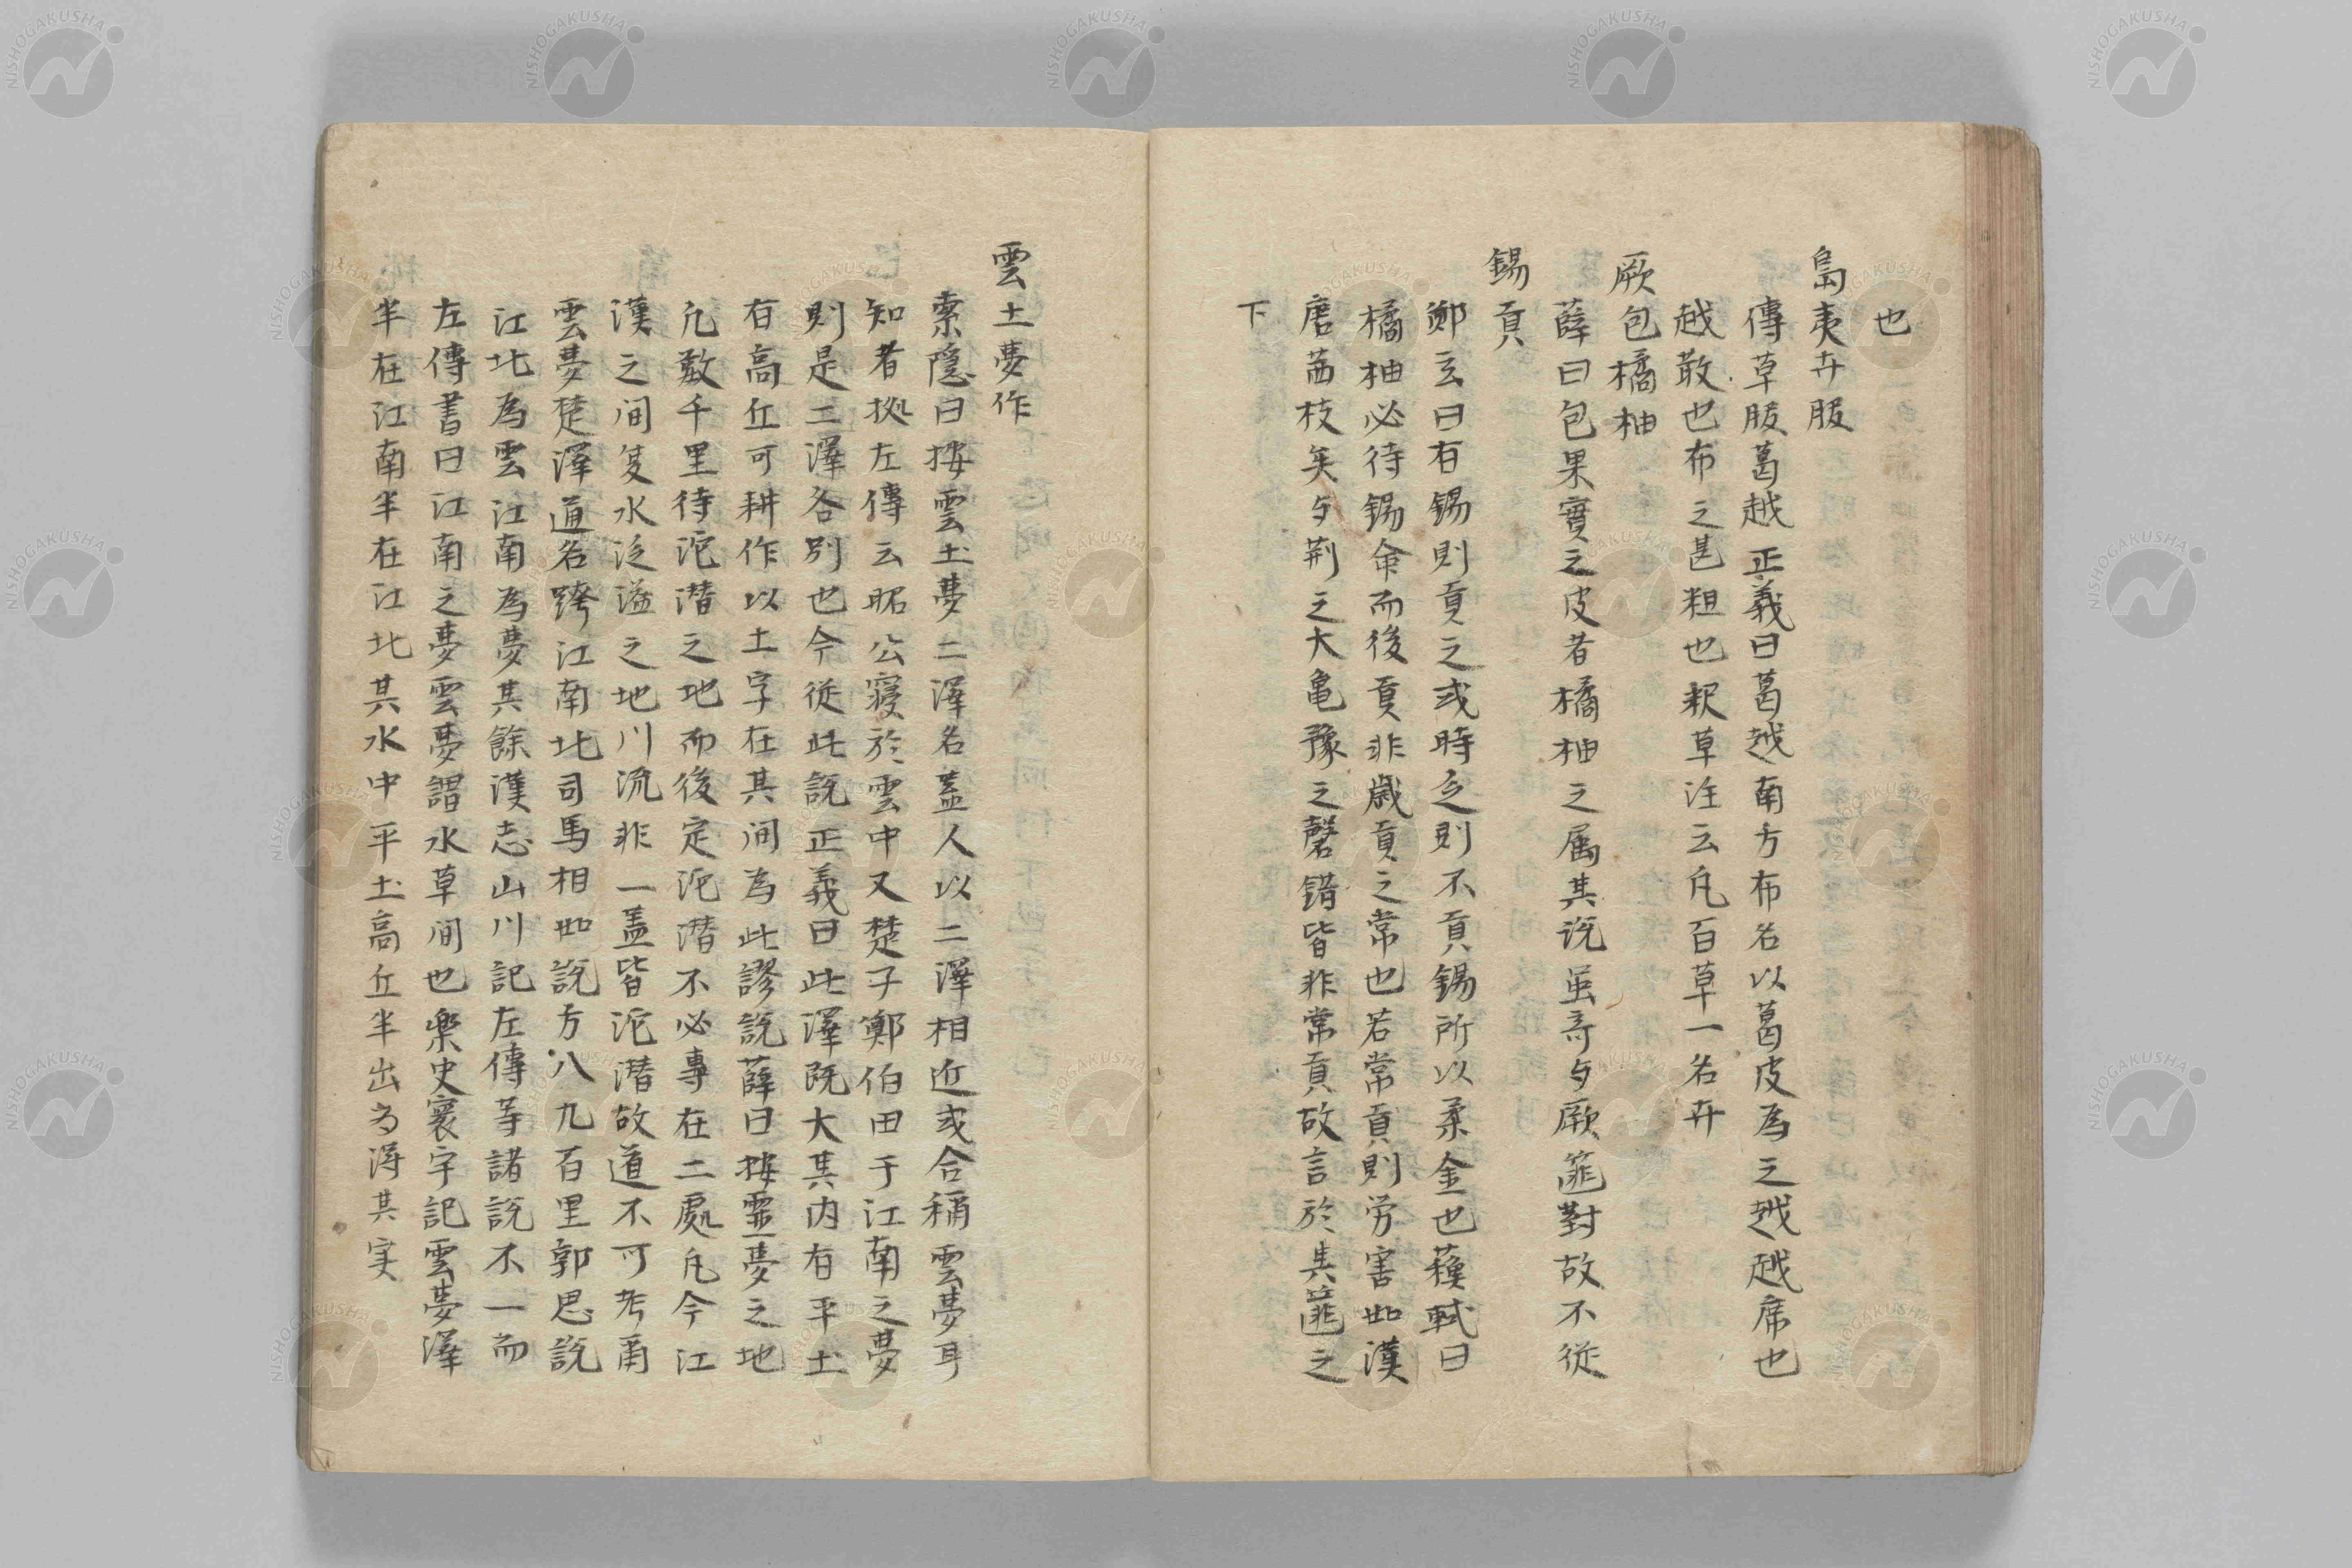 也
島夷卉服
傳草服葛越正義曰葛越南方布名以葛皮為之越越席也
越散也布之甚粗也釈草注云凡百草一名卉
厥包橘柚
薛曰包果實之皮者橘柚之属其说虽奇与厥篚對故不従
錫貢
鄭玄曰有錫則貢之或時乏則不貢錫所以柔金也蘓軾曰
橘柚必待錫命而後貢非歳貢之常也若常貢則労害如漢
唐茘枝矣与荊之大亀豫之磬錯皆非常貢故言於其篚之
下
雲土夢作
索隠曰按雲土夢二澤名盖人以二澤相近或合稱雲夢耳
知者拠左傳云昭公寝於雲中又楚子鄭伯田于江南之夢
則是二澤各別也今従此説正義曰此澤既大其内有平土
有高丘可耕作以土字在其间為此謬説薛曰按雲夢之地
凢数千里待沱潜之地而後定沱潜不必專在二處凢今江
漢之间复水泛溢之地川流非一盖皆沱潜故道不可考爾
雲夢楚澤通名跨江南北司馬相如説方八九百里郭思説
江北為雲江南為夢其餘漢志山川記左傳等諸説不一而
左傳書曰江南之夢雲夢謂水草间也楽史寰宇記雲夢澤
半在江南半在江北其水中平土高丘半出为得其実
NISHOGAKUSHA